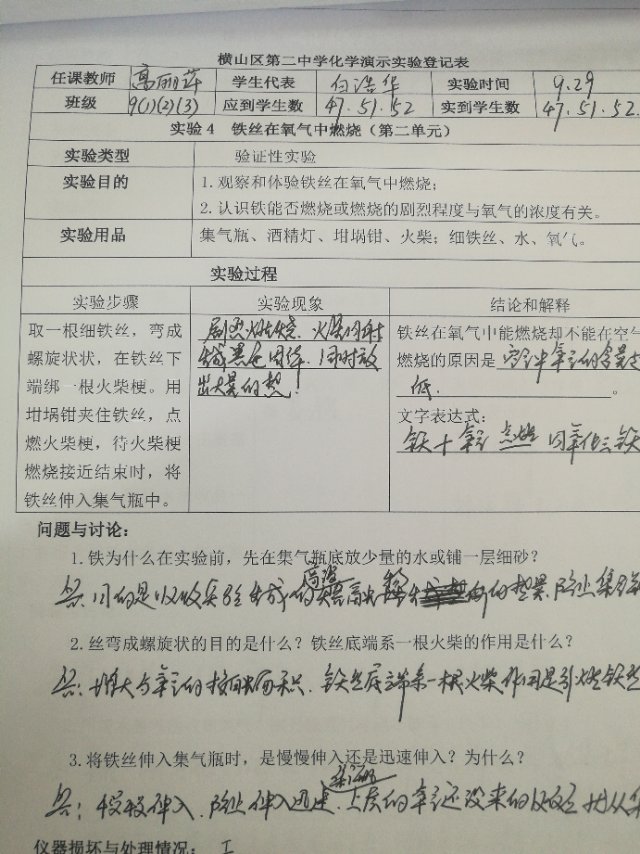 横山区第二中学化学演示实验登记表
任课教师 高丽萍 学生代表 白浩华 实验时间 9.29
班级 9(1)(2)(3) 应到学生数 47.51.52 实到学生数 47.51.52.
实验4 铁丝在氧气中燃烧（第二单元）
实验类型 验证性实验
实验目的 1.观察和体验铁丝在氧气中燃烧；
2.认识铁能否燃烧或燃烧的剧烈程度与氧气的浓度有关。
实验用品 集气瓶、酒精灯、坩埚钳、火柴；细铁丝、水、氧气。
实验过程
实验步骤 实验现象 结论和解释
取一根细铁丝，弯成
螺旋状状，在铁丝下
端绑一根火柴梗。用
坩埚钳夹住铁丝，点
燃火柴梗，待火柴梗
燃烧接近结束时，将
铁丝伸入集气瓶中。
剧烈燃烧，火星四射
生成黑色固体，同时放
出大量的热！
铁丝在氧气中能燃烧却不能在空气
燃烧的原因是 空气中氧气的含量
低. 。
文字表达式：
铁 + 氧气 点燃 四氧化三铁
问题与讨论：
1.铁为什么在实验前，先在集气瓶底放少量的水或铺一层细砂？
答：目的是吸收实验生成 的 热量，防止集
2.丝弯成螺旋状的目的是什么？铁丝底端系一根火柴的作用是什么？
答：增大与氧气的接触面积．铁丝底端系一根火柴作用是引燃铁丝
3.将铁丝伸入集气瓶时，是慢慢伸入还是迅速伸入？为什么？
答：慢慢伸入．防止伸入迅速，上层的氧气还没来的及反应
仪器损坏与处理情况：